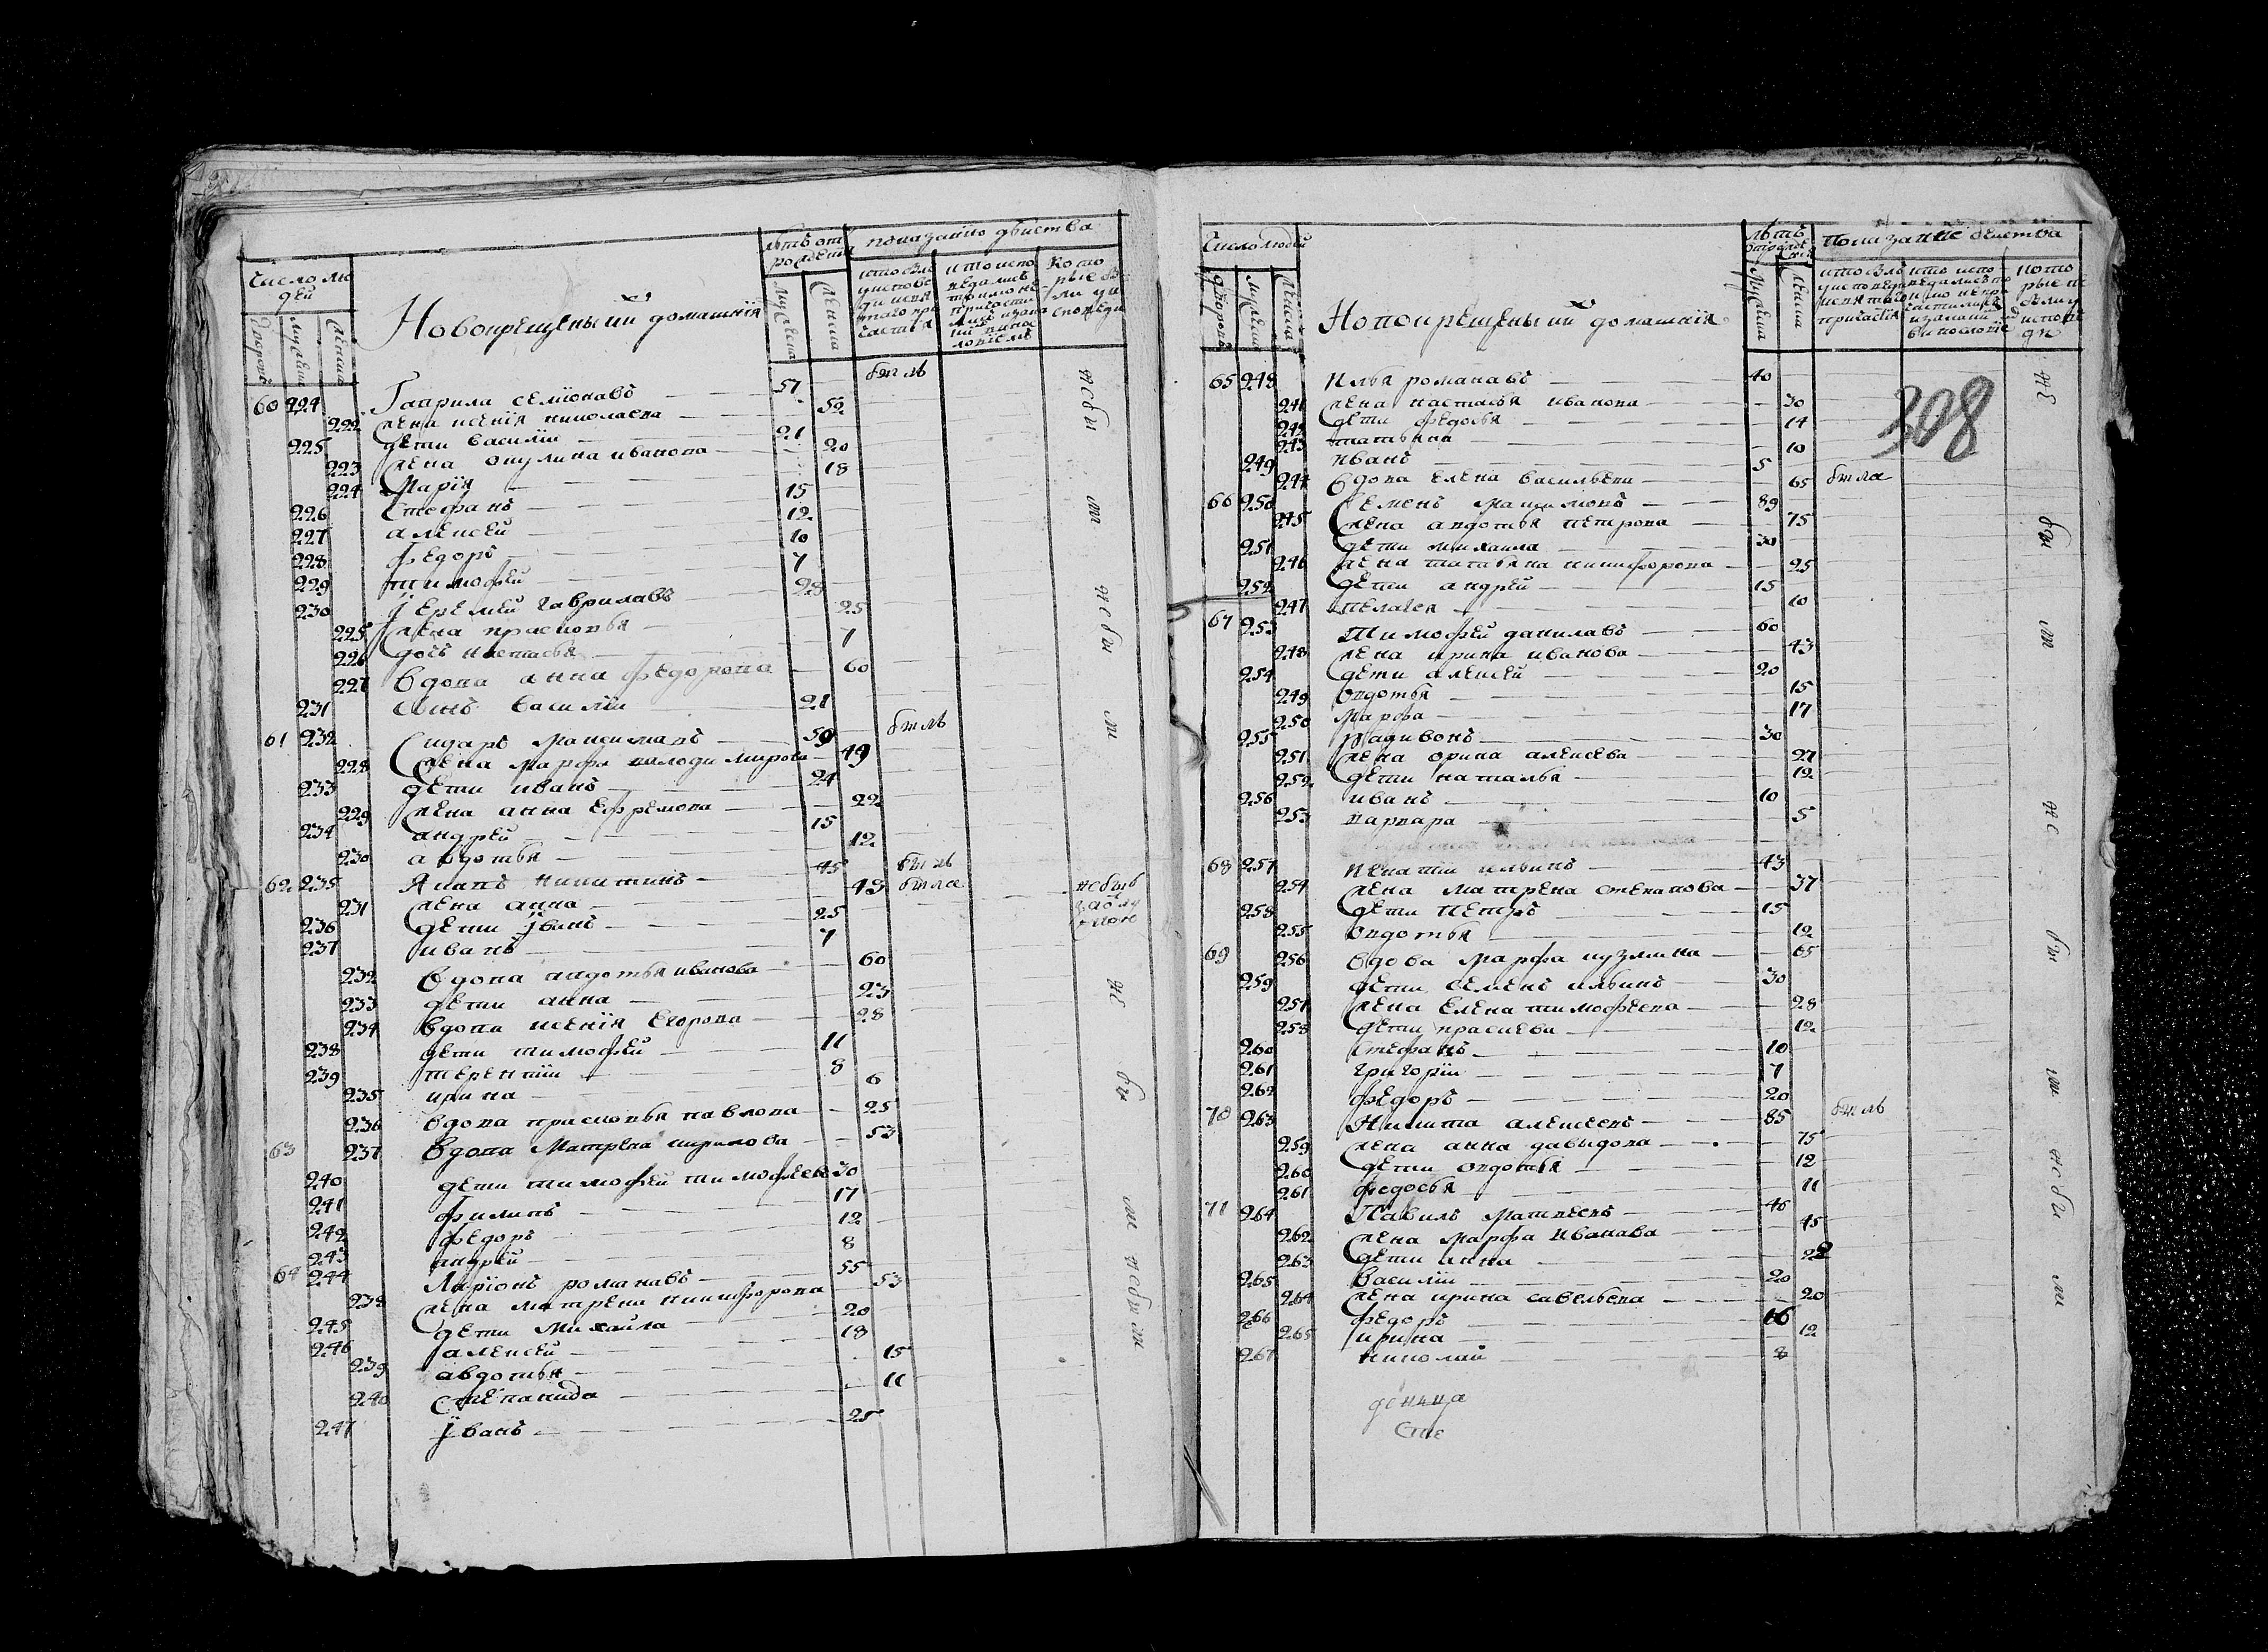 число лю
дей
Новокрещеныхъ домашнїя
лѣтъ от
рожденїя
показанїю действа
дворовъ
мужска
женска
мужска
женска
Кото
рые бы
ли ъ и
споведи
60 224 Гаврила семїонавъ 57 былъ
222 жена ксенїя николаева 52
225 дети василїи 21
223 жена окулина иванова 20
224 Марїя 18
226 Стефанъ 15
227 алексей 12
228 федоръ 10
229 тимофей 7
230 Їеремей гаврилавъ 28
225 жена прасковья 25
226 дочь настасья 7
227 вдова анна федорова 60
231 сынъ василїи 21
61 232 Сидаръ максимавъ 59 былъ
228 жена марфа володимирова 49
233 дети иванъ 24
229 жена анна ефремова 22
234 андрей 15
230 авдотья 12
62 235 никитинъ 45 былъ
231 жена анна 43 была
236 дети Їванъ 25 небылъ
237 иванъ 7
232 вдова авдотья иванова 60
233 дети анна 23
234 вдова ксенїя Егорова 28
238 дети тимофей 11
239 терентїи 8
235 ирина 6
236 вдова прасковья павлова 25
63 237 вдова Матрена кирилова 53
240 дети тимофей тимофеевъ 30
241 филипъ 17
242 федоръ 12
243 андрей 8
64 244 Ларїонъ романавъ 55
238 жена матрена никифорова 53
245 дети михаила 20
246 алексей 18
239 авдотья 15
240 степанида 11
247 Їванъ 25
не бы ли
Число людей
Новокрещеныхъ домашнїя
показанїе действа
дворовъ
мужска
женска
мужска
женска
308
65 248 Илья романавъ 40
241 жена настасья иванова 30
242 дети федосья 14
243 татьяна 10
249 иванъ 5
244 вдова елена васильева 65 была
66 250 Семенъ максимовъ 89
245 жена авдотья петрова 75
251 дети михаила 30
246 жена татьяна никифорова 25
252 дети андрей 15
247 пелагея 10
67 253 Тимофей данилавъ 60
248 жена ирина иванова 43
254 дети алексей 20
249 овдотья 15
250 марфа 17
255 радивонъ 30
251 жена орина алексеева 27
252 дети наталья 12
256 иванъ 10
253 варвара 5
68 257 игнатїи ильинъ 43
254 жена матрена степанова 37
258 дети петръ 15
255 овдотья 12
69 256 вдова марфа кузмина 65
259 дети семенъ ильинъ 30
257 жена елена тимофеева 28
258 дети 12
260 стефанъ 10
261 григорїи 7
262 федоръ 20
70 263 Никита алексеевъ 85 былъ
259 жена анна давыдова 75
260 дети овдотья 12
261 федосья 11
71 264 Павилъ матвеевъ 46
262 жена марфа иванава 45
263 дети анна 22
265 василїи 20
264 жена ирина савельева 20
266 федоръ 16
265 ирина 12
267 николай 8
Сте